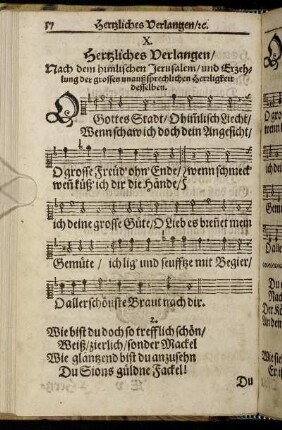 57 Hertzliches Verlangen/ ꝛc.
X.
Hertzliches Verlangen/
Nach dem him̃lischen Jerusalem/ und Erzeh-
lung der grossen unaußsprechlichen Herꝛligkeit
desselben.
O Gottes Stadt/ O him̃lisch Liecht/
Wenn schaw ich doch dein Angesicht/
O grosse Freüd' ohn' Ende/ wenn schmeck
weñ küß' ich dir die Hände/
ich deine grosse Güte/ O Lieb es breñet mein
Gemüte/ ich lig' und seufftze mit Begier/
O allerschönste Braut nach dir.
2.
Wie bist du doch so trefflich schön/
Weiß/ zierlich/ sonder Mackel
Wie gläntzend bist du anzusehn
Du Sions güldne Fackel!
Du